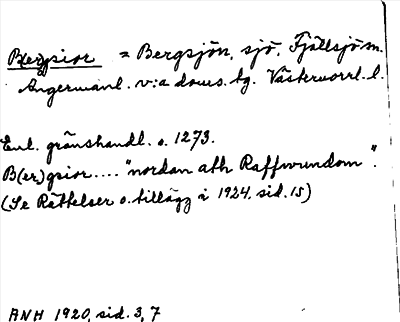 Bergsior = Bergsjön, sjö, Fjällsjö sn.
Ångermanl. v:a doms. bg. Västernorrl. l.
Enl. gränshandl. o. 1273.
B(er)gsior.... "nordan ath Raffwundom".
(Se Rättelser o. tillägg i 1924, sid. 15)
ANH 1920, sid. 3, 7